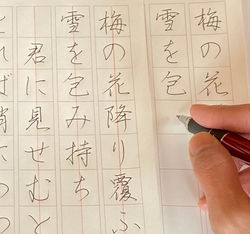 梅の花
雪を包
梅の花降り覆ふ
雪を包み持ち
君に見せむと
れば消につつ